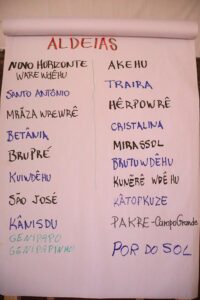 ALDEIAS
NOVO HORIZONTE
WAREWDÊHU
SANTO ANTÔNIO
MRÃZA WREWRÊ
BETÂNIA
BRUPRÉ
KUIWDÊHU
SÃO JOSÉ
KÂNISDU
GENIPAPO
GENIPAPINHO
AKEHU
TRAIRA
HÊRPOWRÊ
CRISTALINA
MIRASSOL
BRUTUWDÊHU
KUNĒRÊ WDÊHU
KÂTOPKUZE
PAKRE-CampoGrande
POR DO SOL